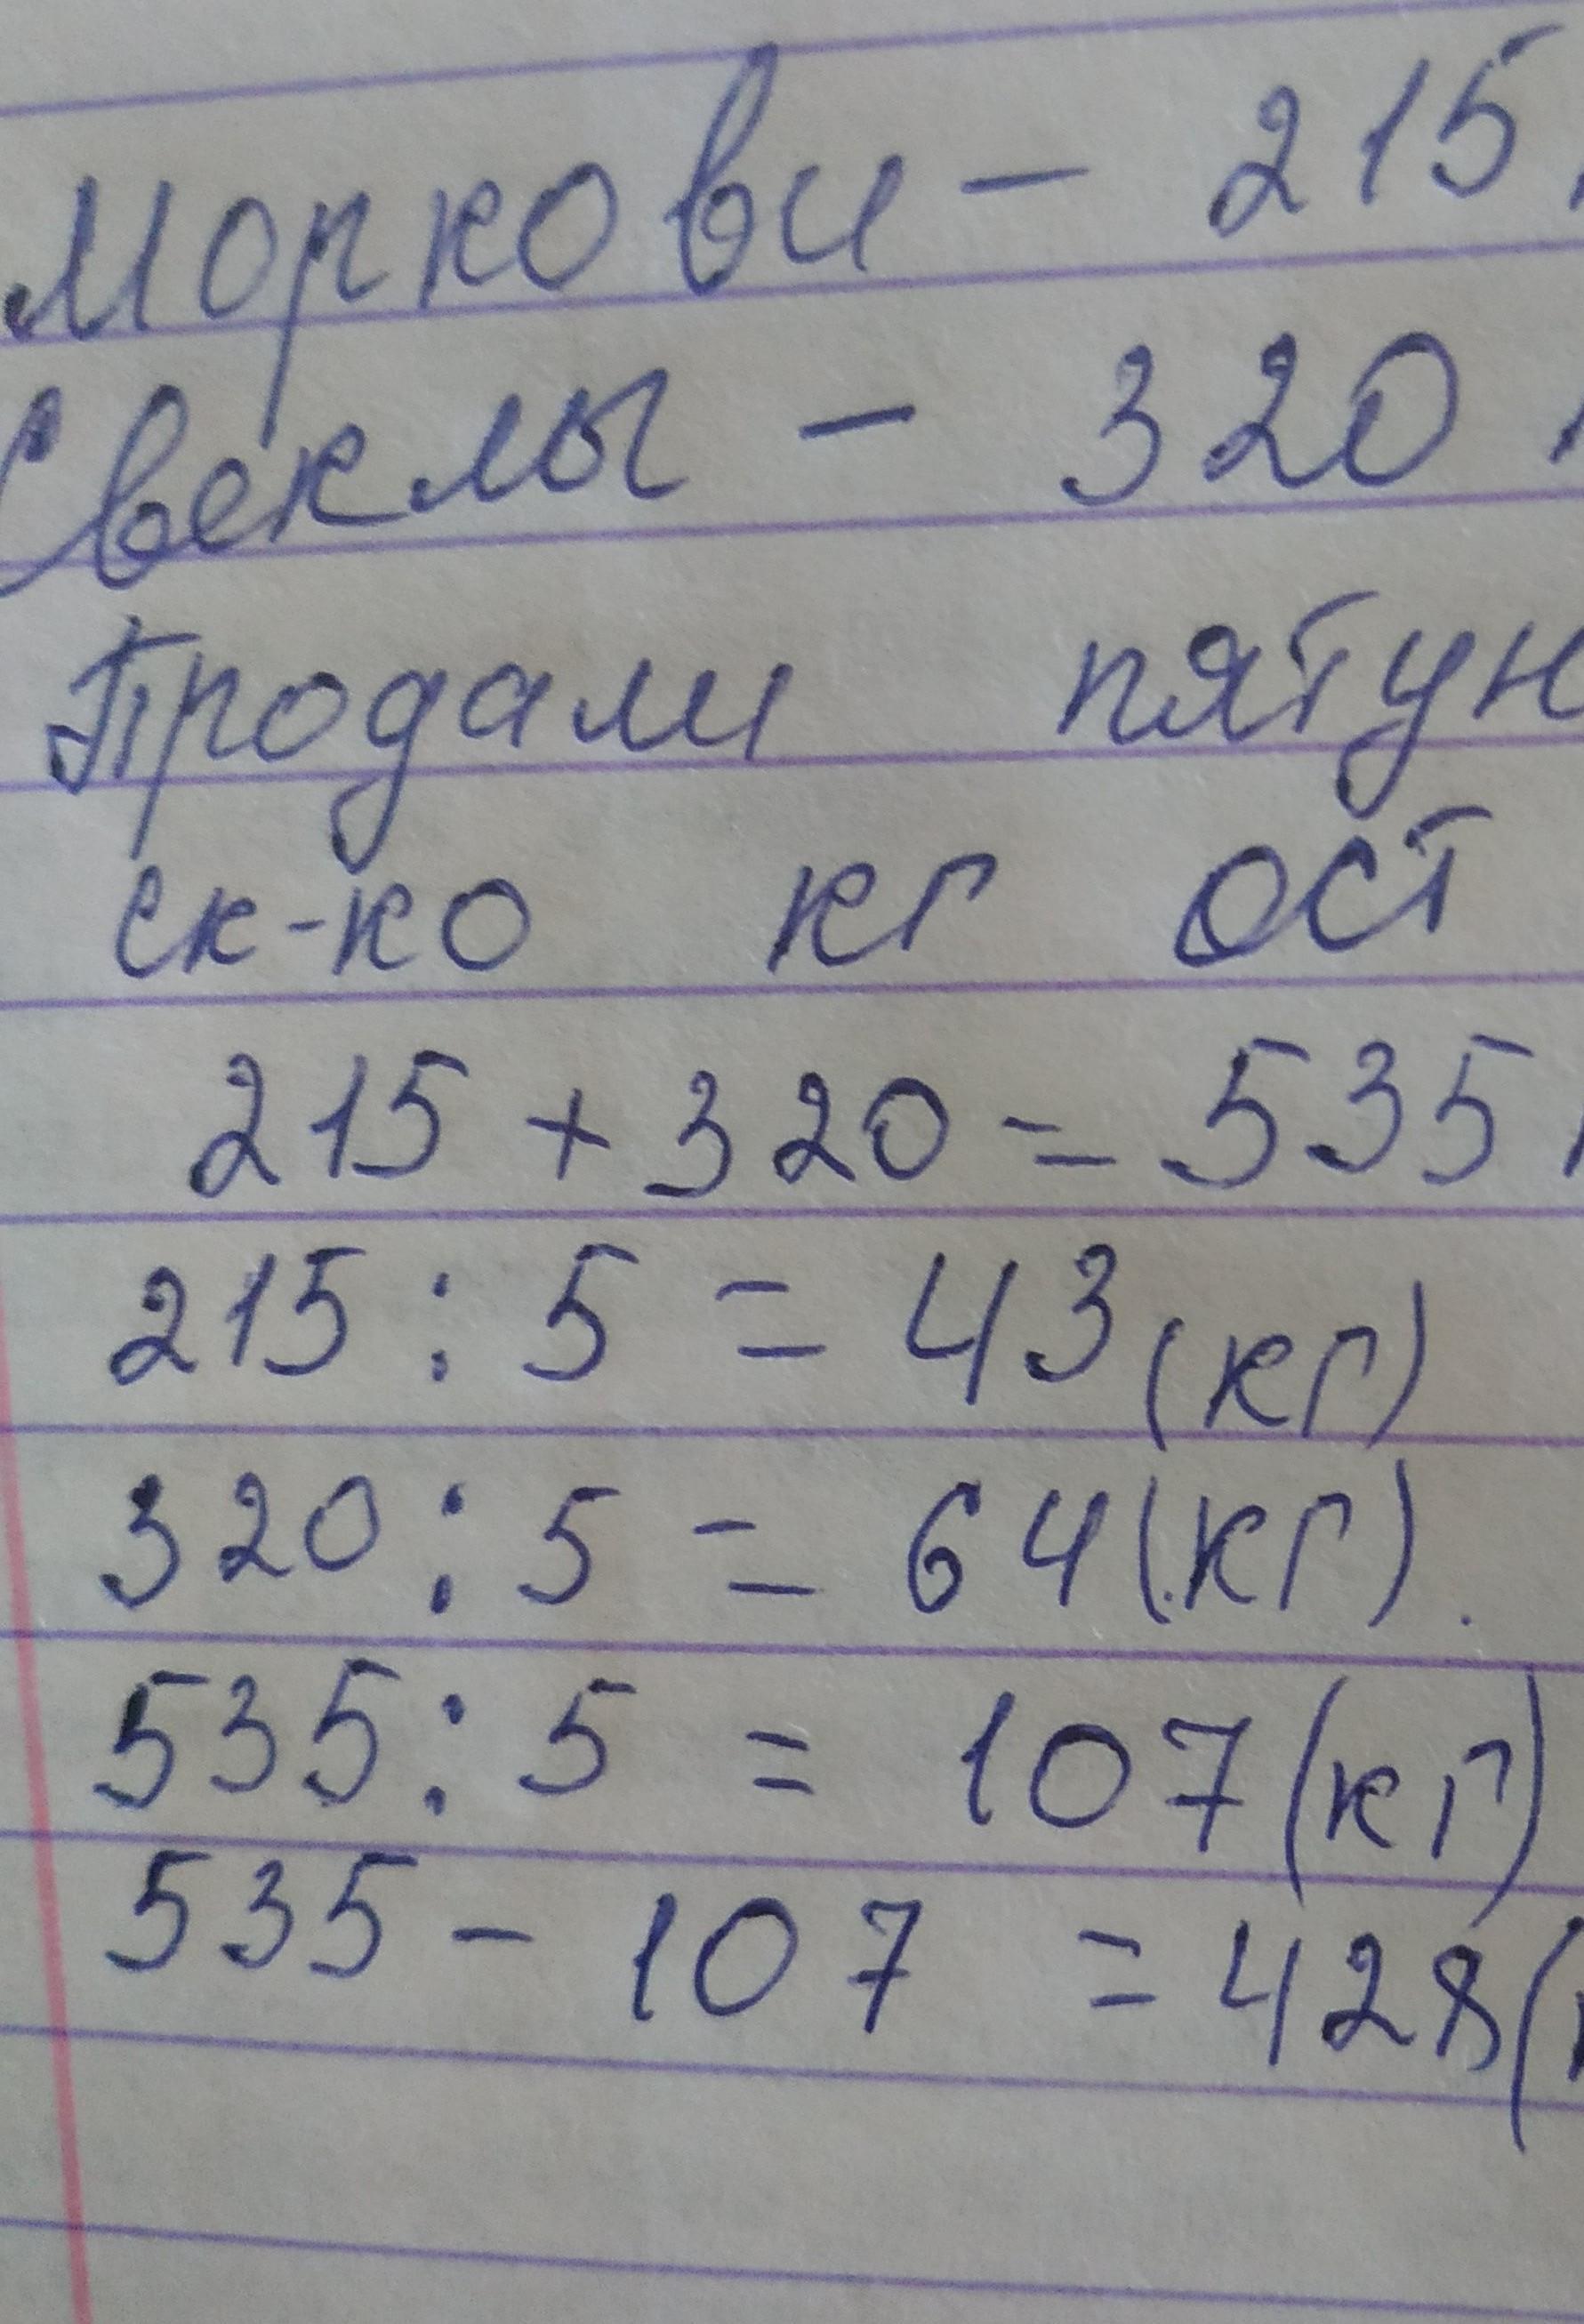 Моркови - 215
Свеклы - 320
Продали пятую
ск-ко кг ост
215 + 320 = 535
215 : 5 = 43 (кг)
320 : 5 = 64 (кг).
535 : 5 = 107 (кг)
535 - 107 = 428 (